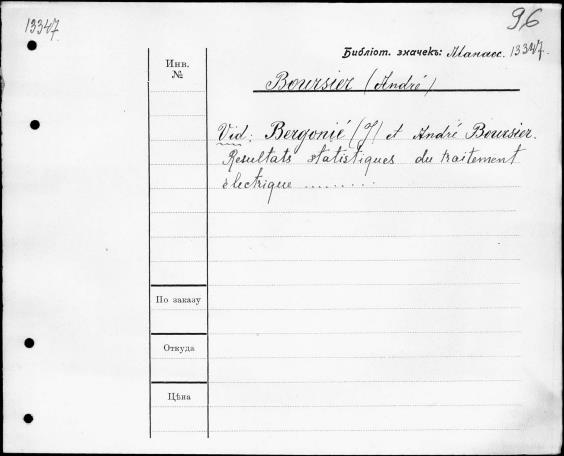 13347
96
Библіот. значекъ: Atanacc. 13347.
Инв.
№
Boursier (André)
Vid: Bergonié (J) et André Boursier.
Resultats statistiques du traitement
électrique .........
По заказу
Откуда
Цѣна